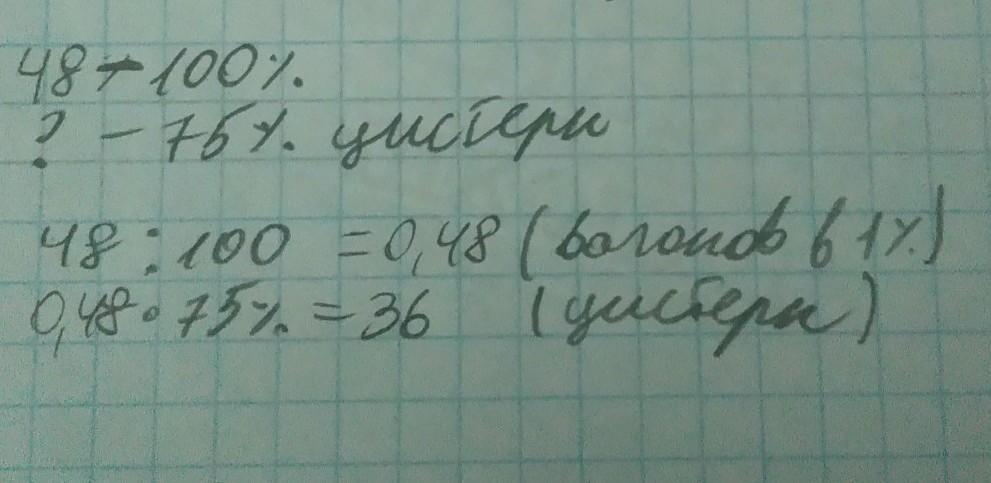 48 - 100%.
? - 75%. цистерн
48 : 100 = 0,48 (вагонов в 1%)
0,48 • 75% = 36 (цистерн)